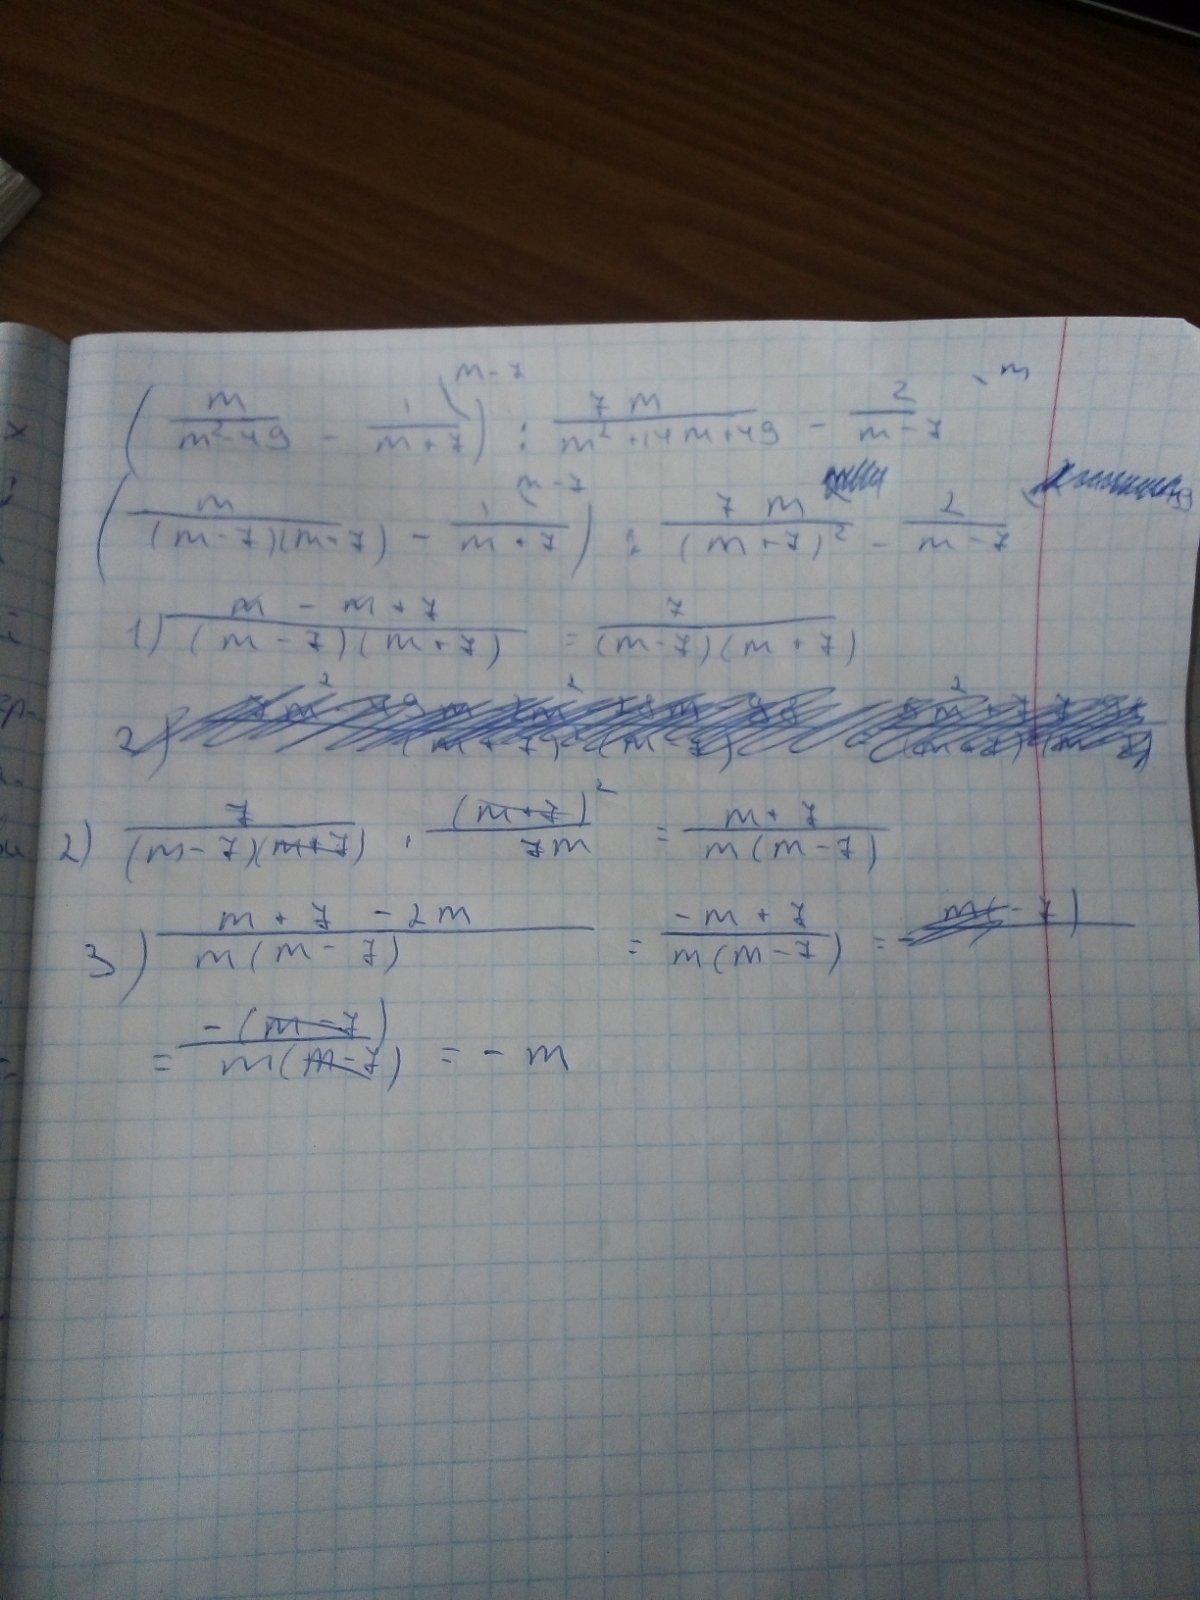 ( m / (m² - 49) - 1 / (m + 7) ^(m - 7) ) : 7m / (m² + 14m + 49) - 2 / (m - 7) ^m
( m / ((m - 7)(m + 7)) - 1 / (m + 7) ^(m - 7) ) : 7m / (m + 7)² - 2 / (m - 7)
1) (m - m + 7) / ((m - 7)(m + 7)) = 7 / ((m - 7)(m + 7))
2)
2) 7 / ((m - 7)(m + 7)) · (m + 7)² / 7m = (m + 7) / (m(m - 7))
3) (m + 7 - 2m) / (m(m - 7)) = (-m + 7) / (m(m - 7)) =
= -(m - 7) / (m(m - 7)) = - m